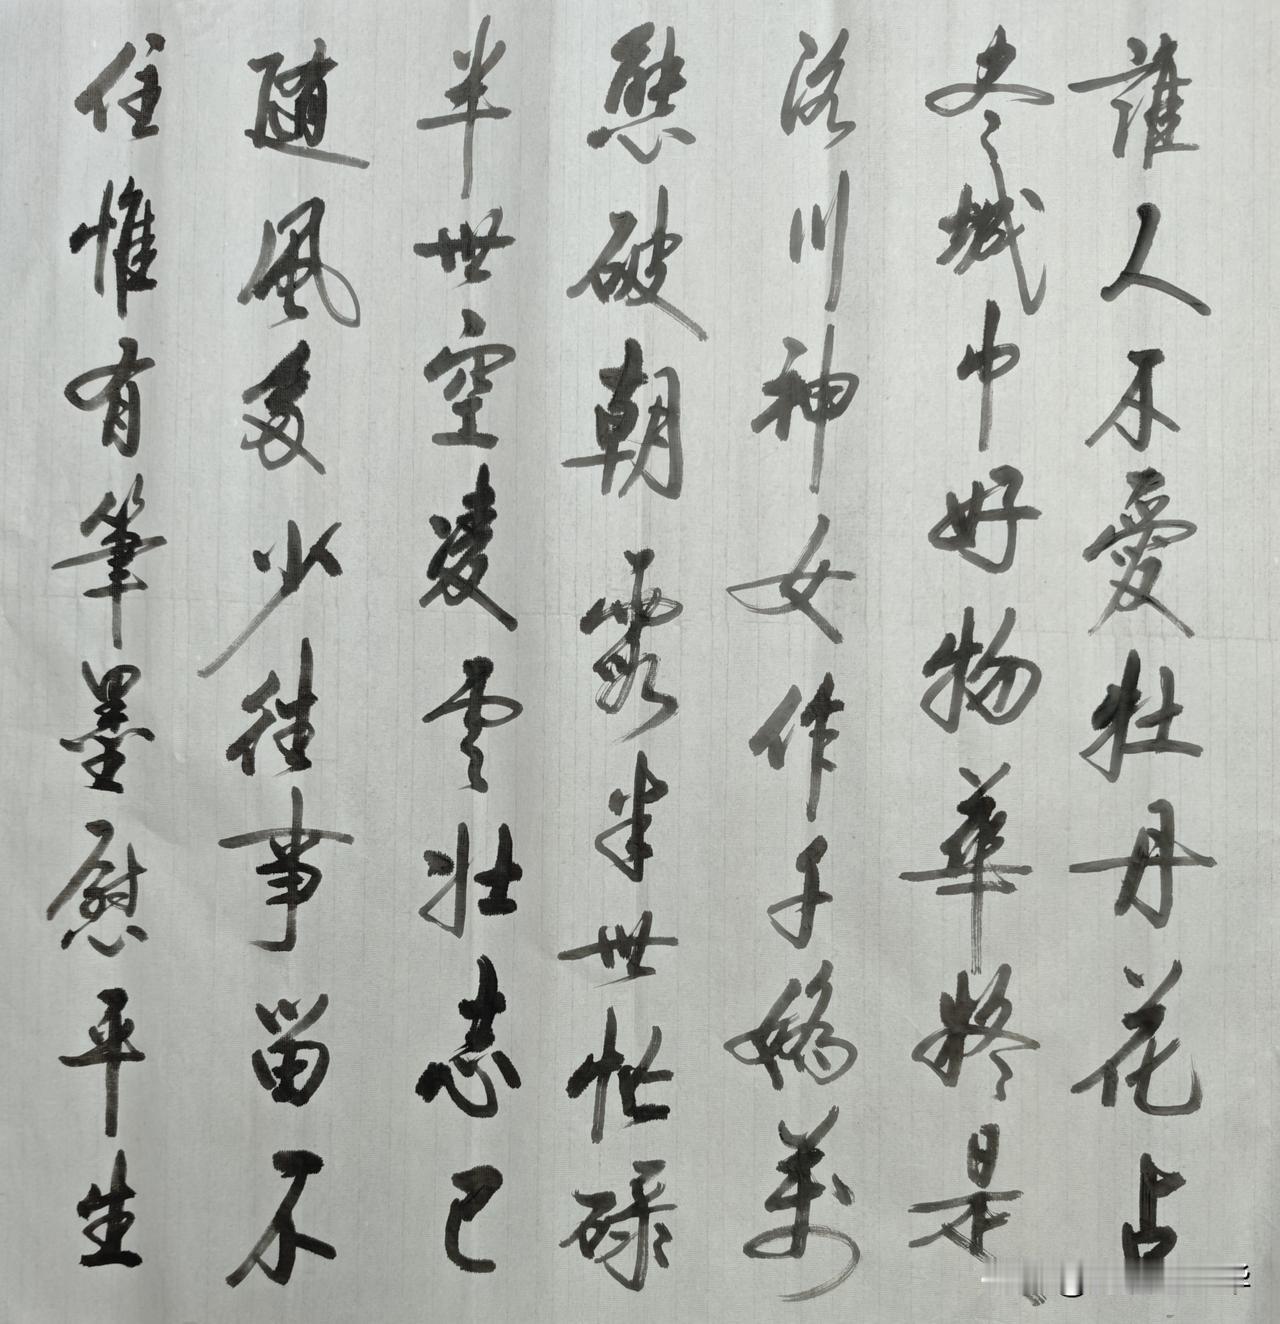 誰人不愛牡丹花占
尽城中好物華疑是
洛川神女作千嬌萬
態破朝霞半世忙碌
半世空凌雲壯志已
隨風多少往事留不
住惟有筆墨慰平生